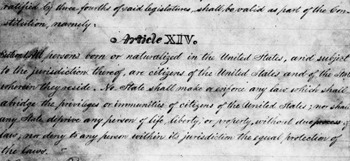 ratified by three fourths of said legislatures, shall be valid as part of the Cons-
titution, namely:
Article XIV.
Section 1. All persons born or naturalized in the United States, and subject
to the jurisdiction thereof, are citizens of the United States and of the State
wherein they reside. No State shall make or enforce any law which shall
abridge the privileges or immunities of citizens of the United States; nor shall
any State deprive any person of life, liberty, or property, without due process of
law, nor deny to any person within its jurisdiction the equal protection of
the laws.